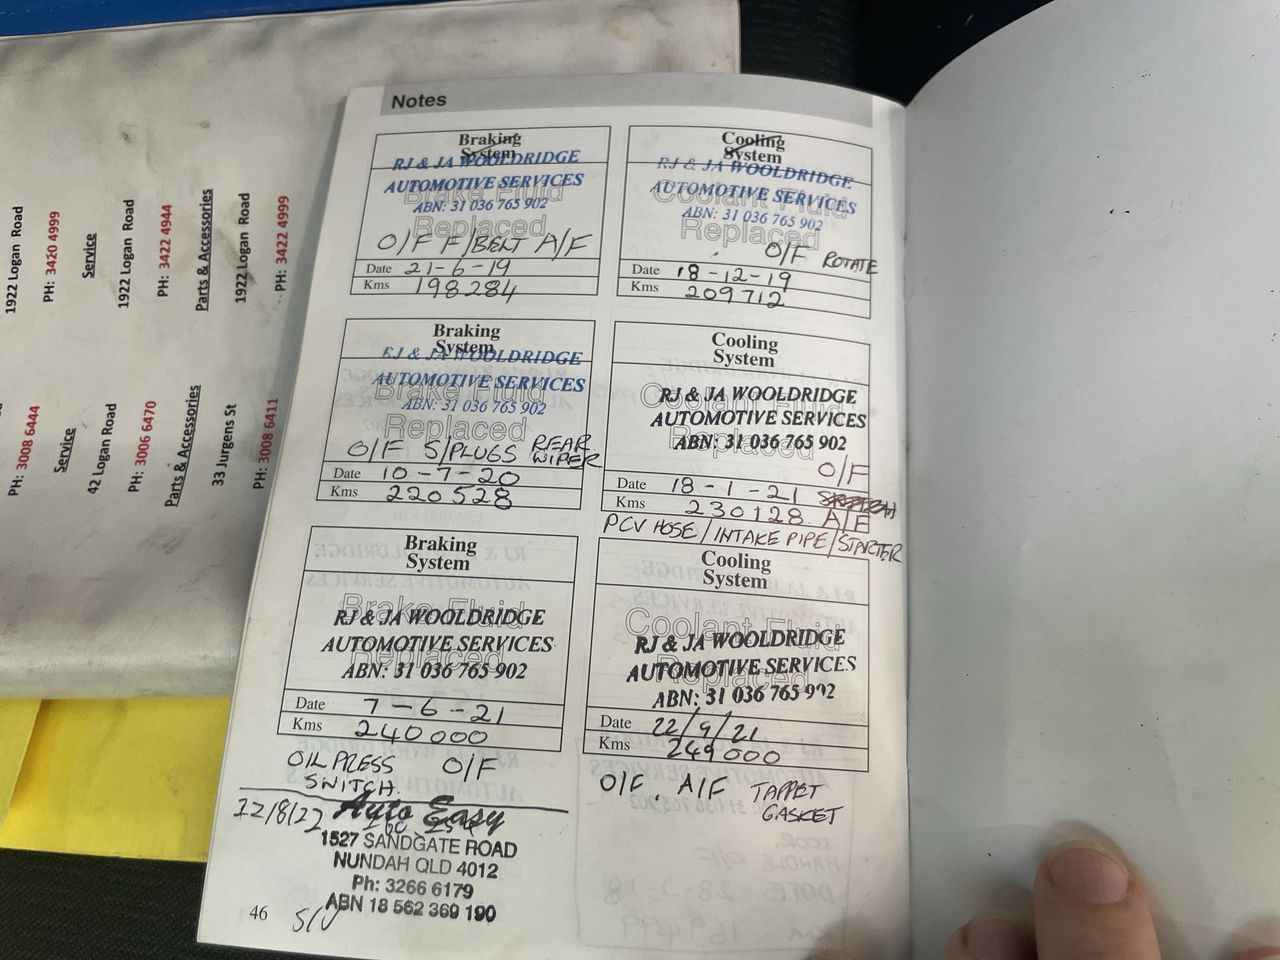 Notes
Braking
System
RJ & JA WOOLDRIDGE
AUTOMOTIVE SERVICES
ABN: 31 036 765 902
Brake Fluid
Replaced
O/F F/BELT A/F
Date 21-6-19
Kms 198284
Cooling
System
RJ & JA WOOLDRIDGE
AUTOMOTIVE SERVICES
ABN: 31 036 765 902
Coolant Fluid
Replaced
O/F ROTATE
Date 18-12-19
Kms 209712
Braking
System
RJ & JA WOOLDRIDGE
AUTOMOTIVE SERVICES
ABN: 31 036 765 902
Brake Fluid
Replaced
O/F S/PLUGS REAR
WIPER
Date 10-7-20
Kms 220528
Cooling
System
RJ & JA WOOLDRIDGE
AUTOMOTIVE SERVICES
ABN: 31 036 765 902
Coolant Fluid
Replaced
O/F
Date 18-1-21
Kms 230128 A/F
PCV HOSE/INTAKE PIPE/STARTER
Braking
System
RJ & JA WOOLDRIDGE
AUTOMOTIVE SERVICES
ABN: 31 036 765 902
Brake Fluid
Replaced
Date 7-6-21
Kms 240000
OIL PRESS O/F
SWITCH.
Cooling
System
RJ & JA WOOLDRIDGE
AUTOMOTIVE SERVICES
ABN: 31 036 765 902
Coolant Fluid
Replaced
Date 22/9/21
Kms 249000
O/F, A/F TAPPET
GASKET
22/8/22 Auto Easy
1527 SANDGATE ROAD
NUNDAH QLD 4012
Ph: 3266 6179
ABN 18 562 369 190
46
1922 Logan Road
PH: 3420 4999
Service
1922 Logan Road
PH: 3422 4944
Parts & Accessories
1922 Logan Road
PH: 3422 4999
PH: 3008 6444
Service
42 Logan Road
PH: 3006 6470
Parts & Accessories
33 Jurgens St
PH: 3008 6411